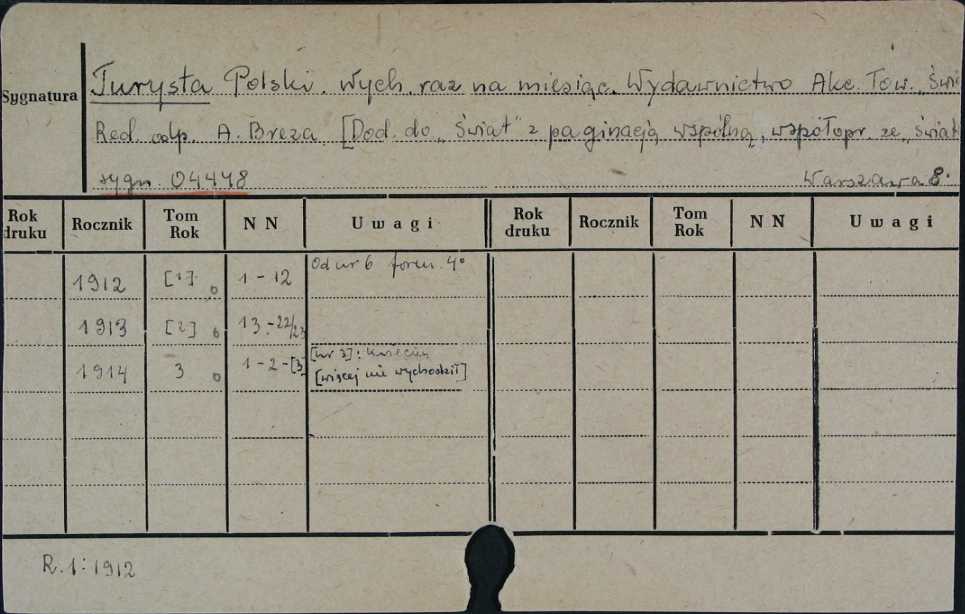 Sygnatura
Turysta Polski. Wych. raz na miesiąc. Wydawnictwo Akc. Tow. „Świ
Red. odp. A. Breza [Dod. do „Świat" z paginacją wspólną, współopr. ze „Świat
sygn. 04448 Warszawa 8°
Rok druku Rocznik Tom Rok N N Uwagi Rok druku Rocznik Tom Rok N N Uwagi
1912 [1] 0 1-12 Od nr 6 form. 4°
1913 [2] 0 13-22/23
1914 3 0 1-2-[3] [nr 3]: kwiecień
[więcej nie wychodził]
R.1:1912